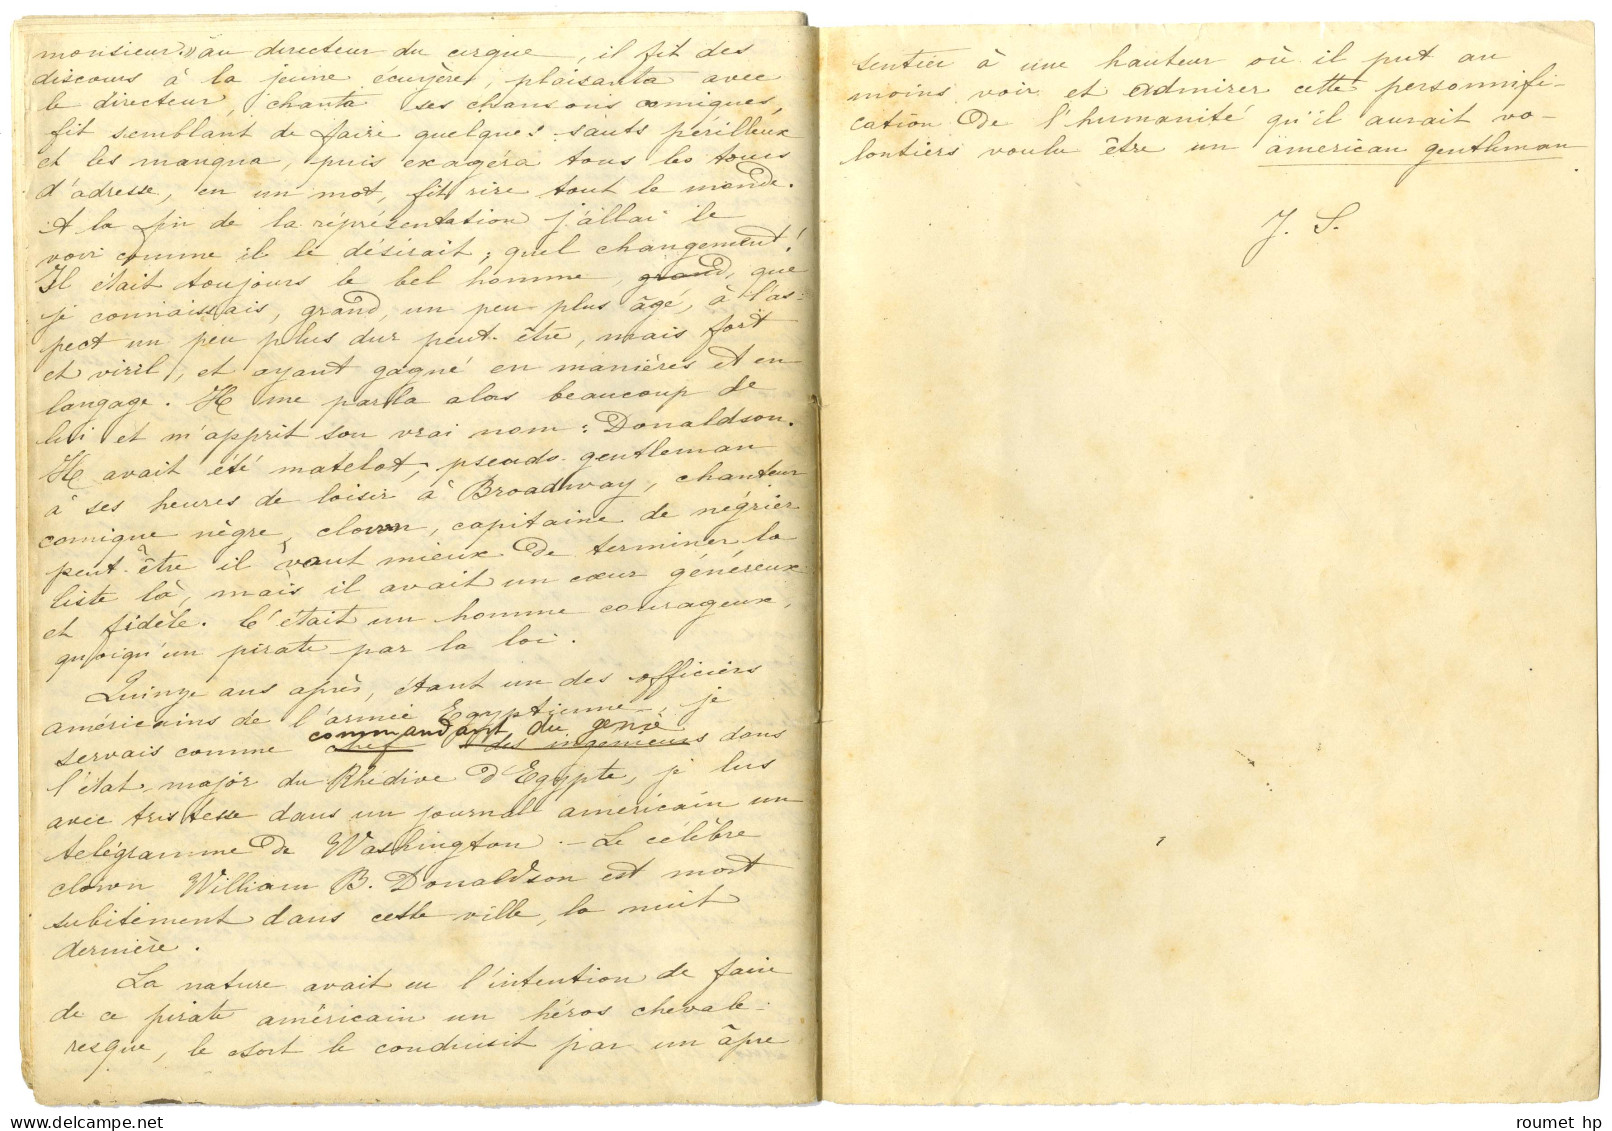 monsieur.» au directeur du cirque, il fit des
discours à la jeune écuyère, plaisanta avec
le directeur, chanta ses chansons comiques,
fit semblant de faire quelques sauts périlleux
et les manqua, puis exagéra tous les tours
d'adresse, en un mot, fit rire tout le monde.
A la fin de la réprésentation j'allai le
voir comme il le désirait; quel changement!
Il était toujours le bel homme, grand, que
je connaissais, grand, un peu plus âgé, à l'as-
pect un peu plus dur peut-être, mais fort
et viril, et ayant gagné en manières et en
langage. Il me parla alors beaucoup de
lui et m'apprit son vrai nom: Donaldson.
Il avait été matelot, pseudo-gentleman
à ses heures de loisir à Broadway, chanteur
comique nègre, clown, capitaine de négrier
peut-être il vaut mieux de terminer la
liste là, mais il avait un cœur généreux
et fidèle. C'était un homme courageux,
quoiqu'un pirate par la loi.
Quinze ans après, étant un des officiers
américains de l'armée Egyptienne, je
commandant du genie
servais comme chef des ingenieurs dans
l'état-major du Khédive d'Egypte, je lus
avec tristesse dans un journal américain un
telégramme de Washington. - Le célèbre
clown William B. Donaldson est mort
subitement dans cette ville, la nuit
dernière.
La nature avait eu l'intention de faire
de ce pirate américain un héros chevale-
resque, le sort le conduisit par un âpre
sentier à une hauteur où il put au
moins voir et admirer cette personnifi-
cation de l'humanité qu'il aurait vo-
lontiers voulu être un american gentleman
J. S.
roumet hp